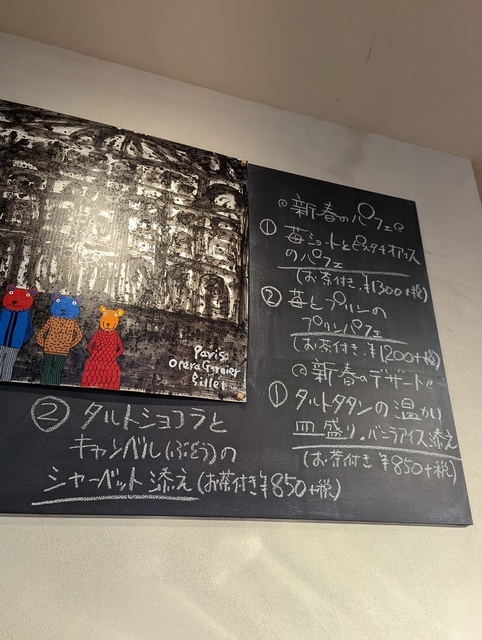 新春のパフェ
① 苺ショートとピスタチオアイス
のパフェ
(お茶付き、¥1300+税)
② 苺とプリンの
プリンパフェ
(お茶付き、¥1200+税)
新春のデザート
① タルトタタンの温かい
皿盛り、バニラアイス添え
(お茶付き ¥850+税)
② タルトショコラと
キャンベル(ぶどう)の
シャーベット添え (お茶付き ¥850+税)
Paris
Opera Garnier
Billet